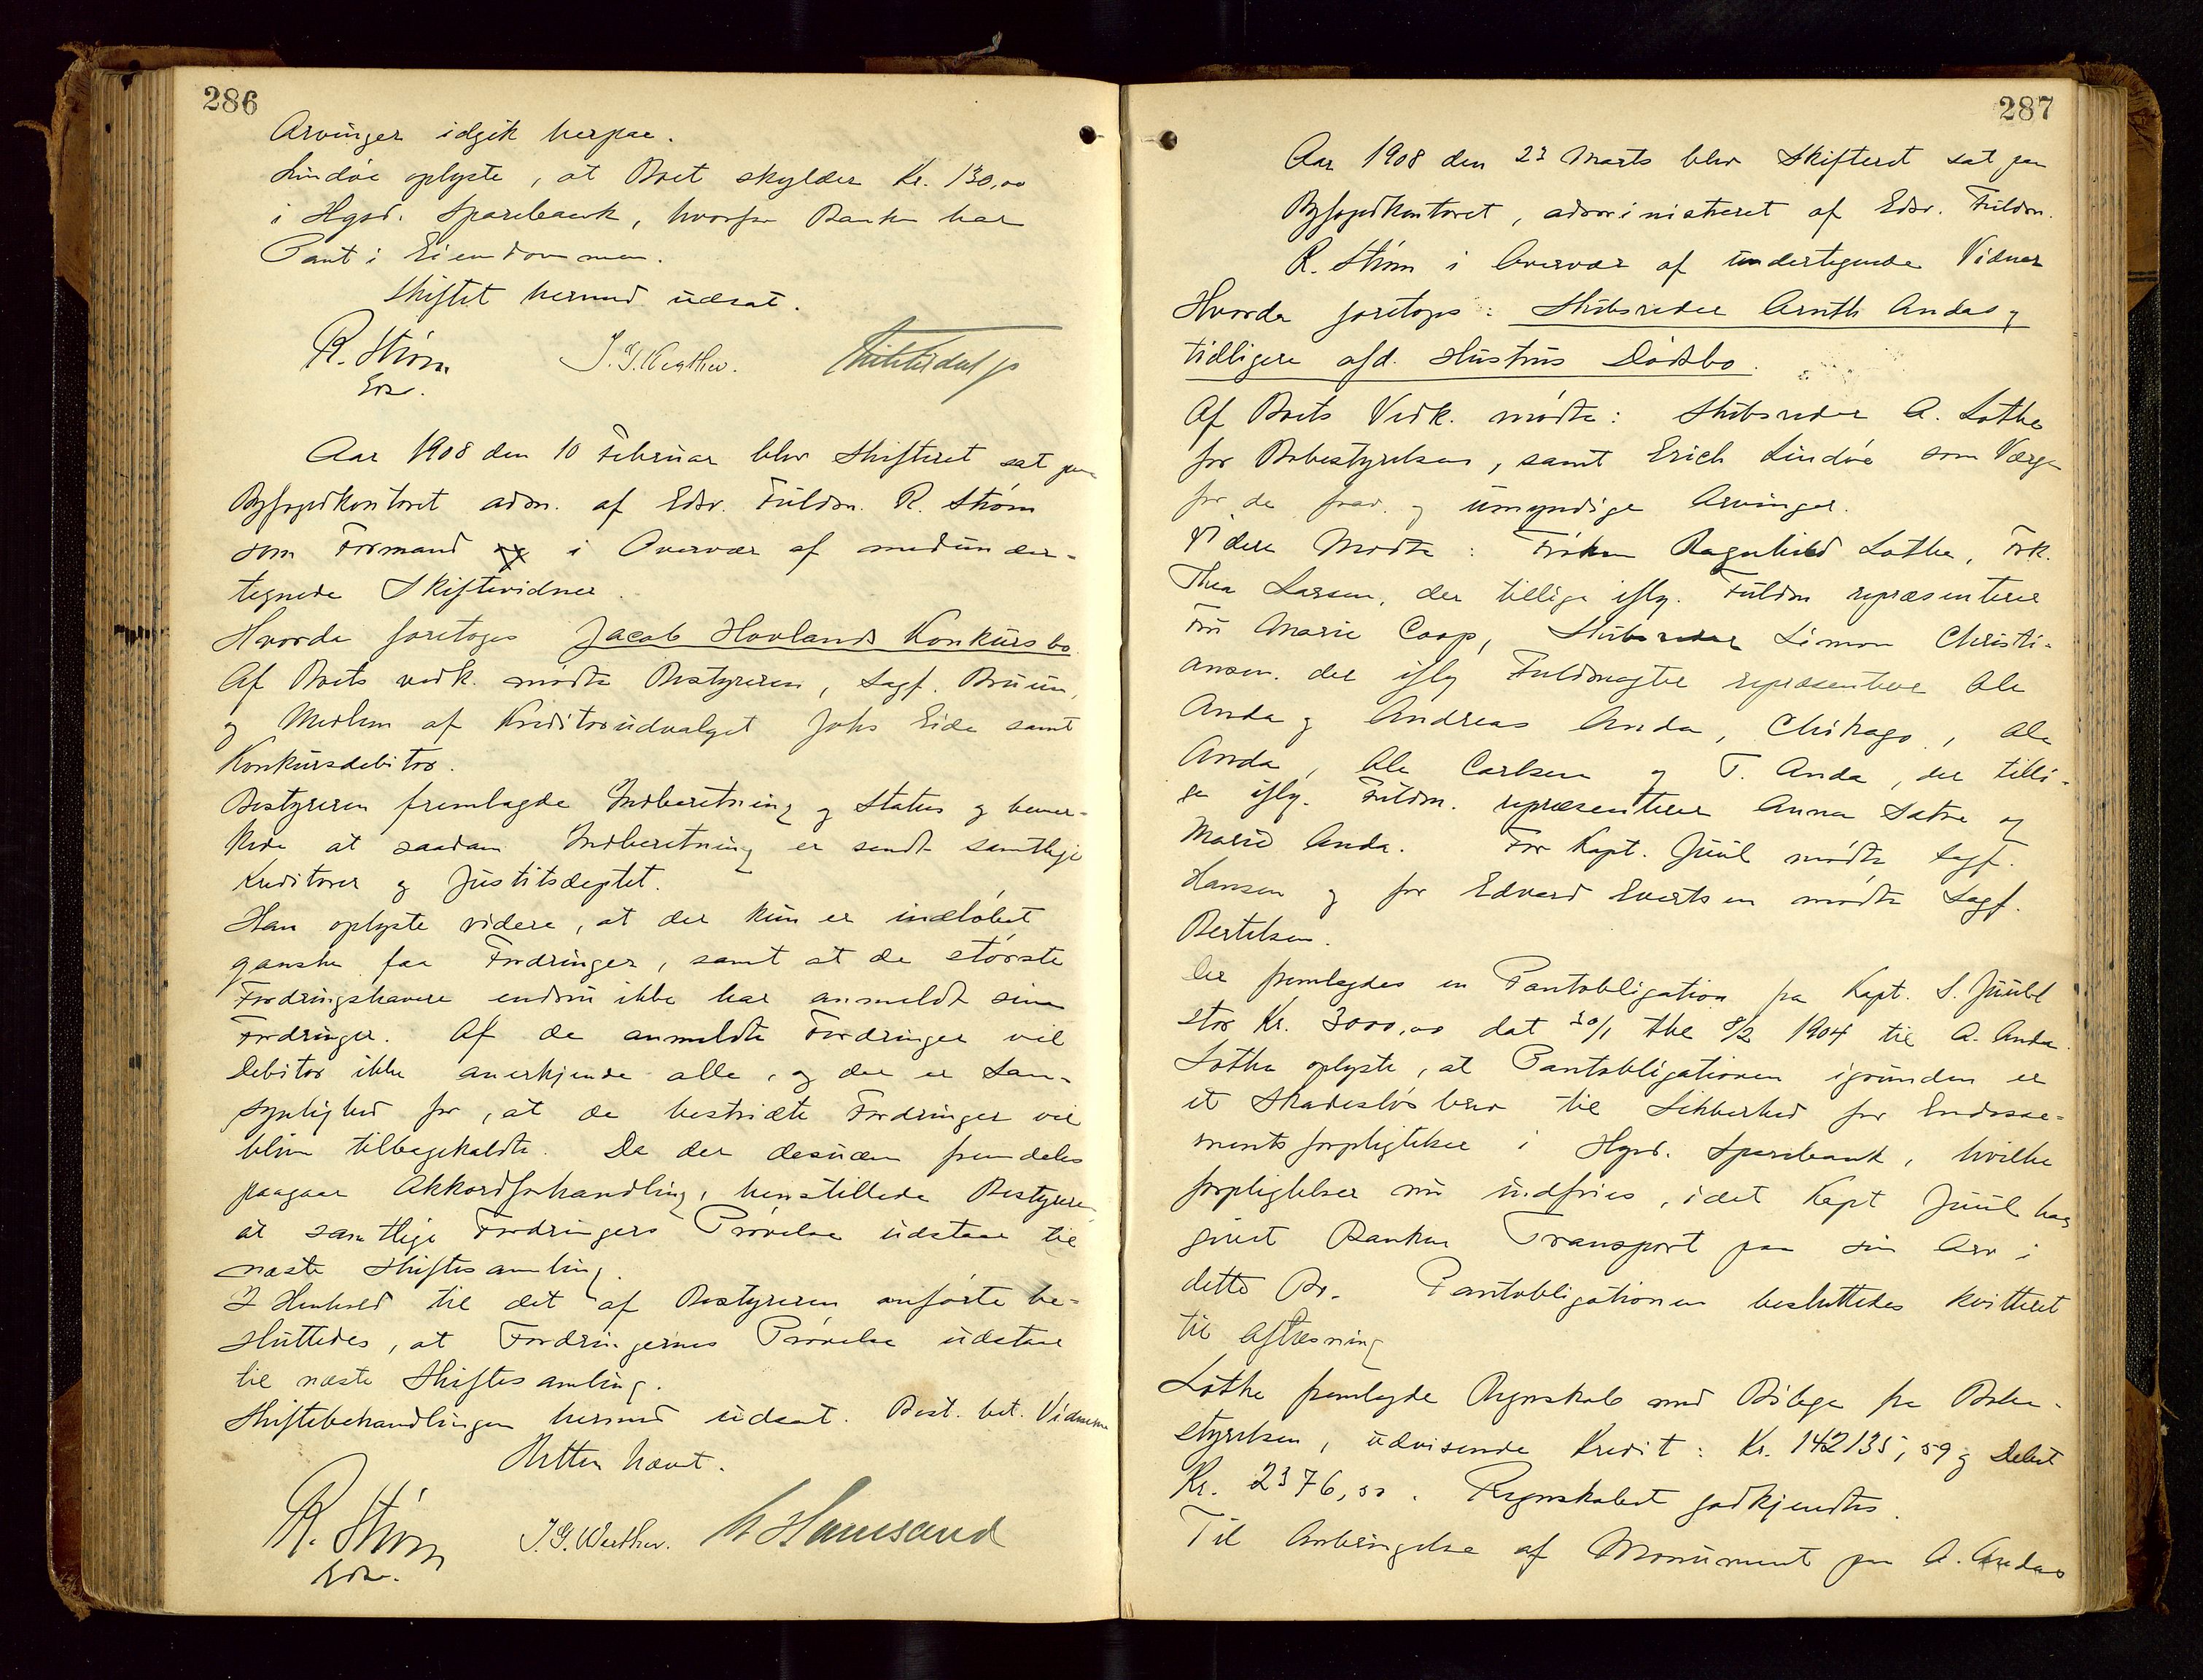 286
Arvinger idgik herpaa.
Lindøe oplyste, at Boet skylder Kr. 130,00
i Hgsd. Sparebank, hvorfor Banken har
Pant i Eiendommen.
Skiftet hermed udsat.
R. Strøm J. G. Werther.
Edsv.
Aar 1908 den 10 Februar blev Skifteret sat paa
Byfogedkontoret adm. af Edsv. Fuldm. R. Strøm
som Formand i Overvær af medunder-
tegnede Skiftevidner.
Hvorda foretoges Jacob Hovlands Konkursbo.
Af Boets vedk. mødte Bestyreren, Sagf. Bruun,
og Medlem af Kreditorudvalget Johs Eide samt
Konkursdebitor.
Bestyreren fremlagde Indberetning og Status og bemær-
kede at saadan Indberetning er sendt samtlige
Kreditorer og Justitsdeptet.
Han oplyste videre, at der kun er indløbet
ganske faa Fordringer, samt at de største
Fordringshavere endnu ikke har anmeldt sine
Fordringer. Af de anmeldte Fordringer vil
Debitor ikke anerkjende alle, og der er San-
synlighed for, at de bestridte Fordringer vil
blive tilbagekaldte. Da der desuden fremdeles
paagaar Akkordforhandling, henstillede Bestyreren
at samtlige Fordringers Prøvelse udstaar til
næste Skiftesamling.
I Henhold til det af Bestyreren anførte be-
sluttedes, at Fordringernes Prøvelse udstaar
til næste Skiftesamling.
Skiftebehandlingen hermed udsat. Best. bet. Vidnerne
Retten hævet.
R. Strøm J. G. Werther. Hamsand
Edsv.
287
Aar 1908 den 23 Marts blev Skifteret sat paa
Byfogedkontoret, administreret af Edsv. Fuldm.
R. Strøm i Overvær af undertegnede Vidner
Hvorda foretoges: Skibsreder Arnth Andas og
tidligere afd. Hustrus Dødsbo.
Af Boets Vedk. mødte: Skibsreder A. Lothe
for Bobestyrelsen, samt Erich Lindøe som Værge
for de frav. og umyndige Arvinger.
Videre Mødte: Frøken Ragnhild Lothe, Frk.
Thea Larsen, der tillige iflg. Fuldm repræsenterer
Fru Marie Coop, Skibsreder Simon Christi-
ansen, der iflg Fuldmagter repræsenterer Ole
Anda og Andreas Anda, Chikago, Ole
Anda, Ole Carlsen og T. Anda, der tilli-
ge iflg. Fuldm. repræsenterer Anna Sætre og
Marie Anda. For Kapt. Juul mødte Sagf.
Hansen og for Edvard Evertsen mødte Sagf.
Bertelsen.
Der fremlagdes en Pantobligation fra Kapt. S. Juul
stor Kr. 3000,00 dat 30/1 thl 8/2 1904 til A. Anda.
Lothe oplyste, at Pantobligationen igrunden er
et Skadesløsbrev til Sikkerhed for Endosse-
mentsforpligtelser i Hgsd. Sparebank, hvilke
forpligtelser nu indfries, idet Kapt Juul har
givet Banken Transport paa sin Arv i
dette Bo. Pantobligationen besluttedes kvitteret
til Aflæsning
Lothe fremlagde Regnskab med Bilage fra Bobe-
styrelsen, udvisende Kredit: Kr. 142135,59 og Debet
Kr. 2376,50. Regnskabet godkjendtes.
Til Anbringelse af Monument paa A. Andas